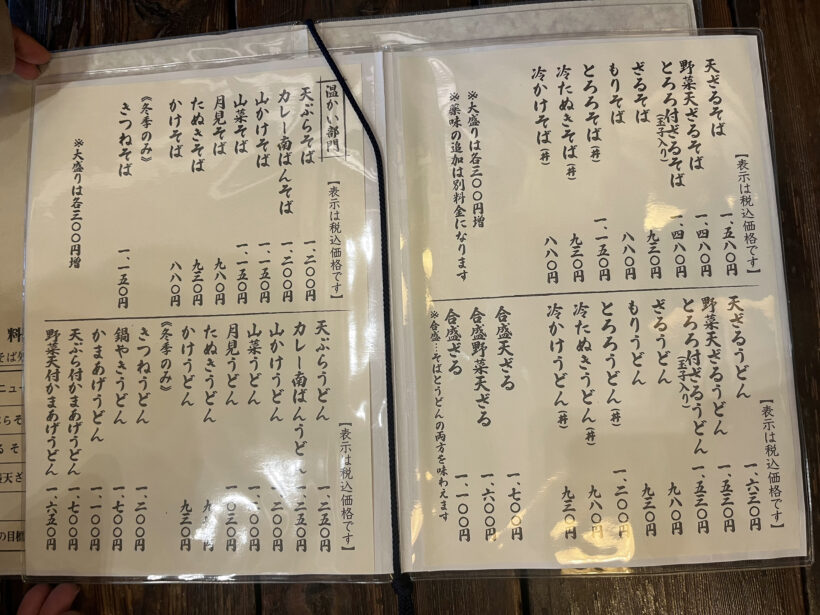 【表示は税込価格です】
天ざるそば 一、五八〇円
野菜天ざるそば 一、四八〇円
とろろ付ざるそば(玉子入り) 一、四八〇円
ざるそば 九三〇円
もりそば 八八〇円
とろろそば(丼) 一、一五〇円
冷たぬきそば(丼) 九三〇円
冷かけそば(丼) 八八〇円
※大盛りは各三〇〇円増
※薬味の追加は別料金になります
【表示は税込価格です】
天ざるうどん 一、六三〇円
野菜天ざるうどん 一、五三〇円
とろろ付ざるうどん(玉子入り) 一、五三〇円
ざるうどん 九八〇円
もりうどん 九三〇円
とろろうどん(丼) 一、二〇〇円
冷たぬきうどん(丼) 九八〇円
冷かけうどん(丼) 九三〇円
合盛天ざる 一、七〇〇円
合盛野菜天ざる 一、六〇〇円
合盛ざる 一、一〇〇円
※合盛…そばとうどんの両方を味わえます
温かい部門
【表示は税込価格です】
天ぷらそば 一、二〇〇円
カレー南ばんそば 一、二〇〇円
山かけそば 一、一五〇円
山菜そば 一、一五〇円
月見そば 九八〇円
たぬきそば 九三〇円
かけそば 八八〇円
《冬季のみ》
きつねそば 一、一五〇円
※大盛りは各三〇〇円増
【表示は税込価格です】
天ぷらうどん 一、二五〇円
カレー南ばんうどん 一、二五〇円
山かけうどん 一、二〇〇円
山菜うどん
月見うどん 一、〇三〇円
たぬきうどん
かけうどん 九三〇円
《冬季のみ》
きつねうどん 一、二〇〇円
鍋やきうどん 一、七〇〇円
かまあげうどん 一、一〇〇円
天ぷら付かまあげうどん 一、七〇〇円
野菜天付かまあげうどん 一、六五〇円
料